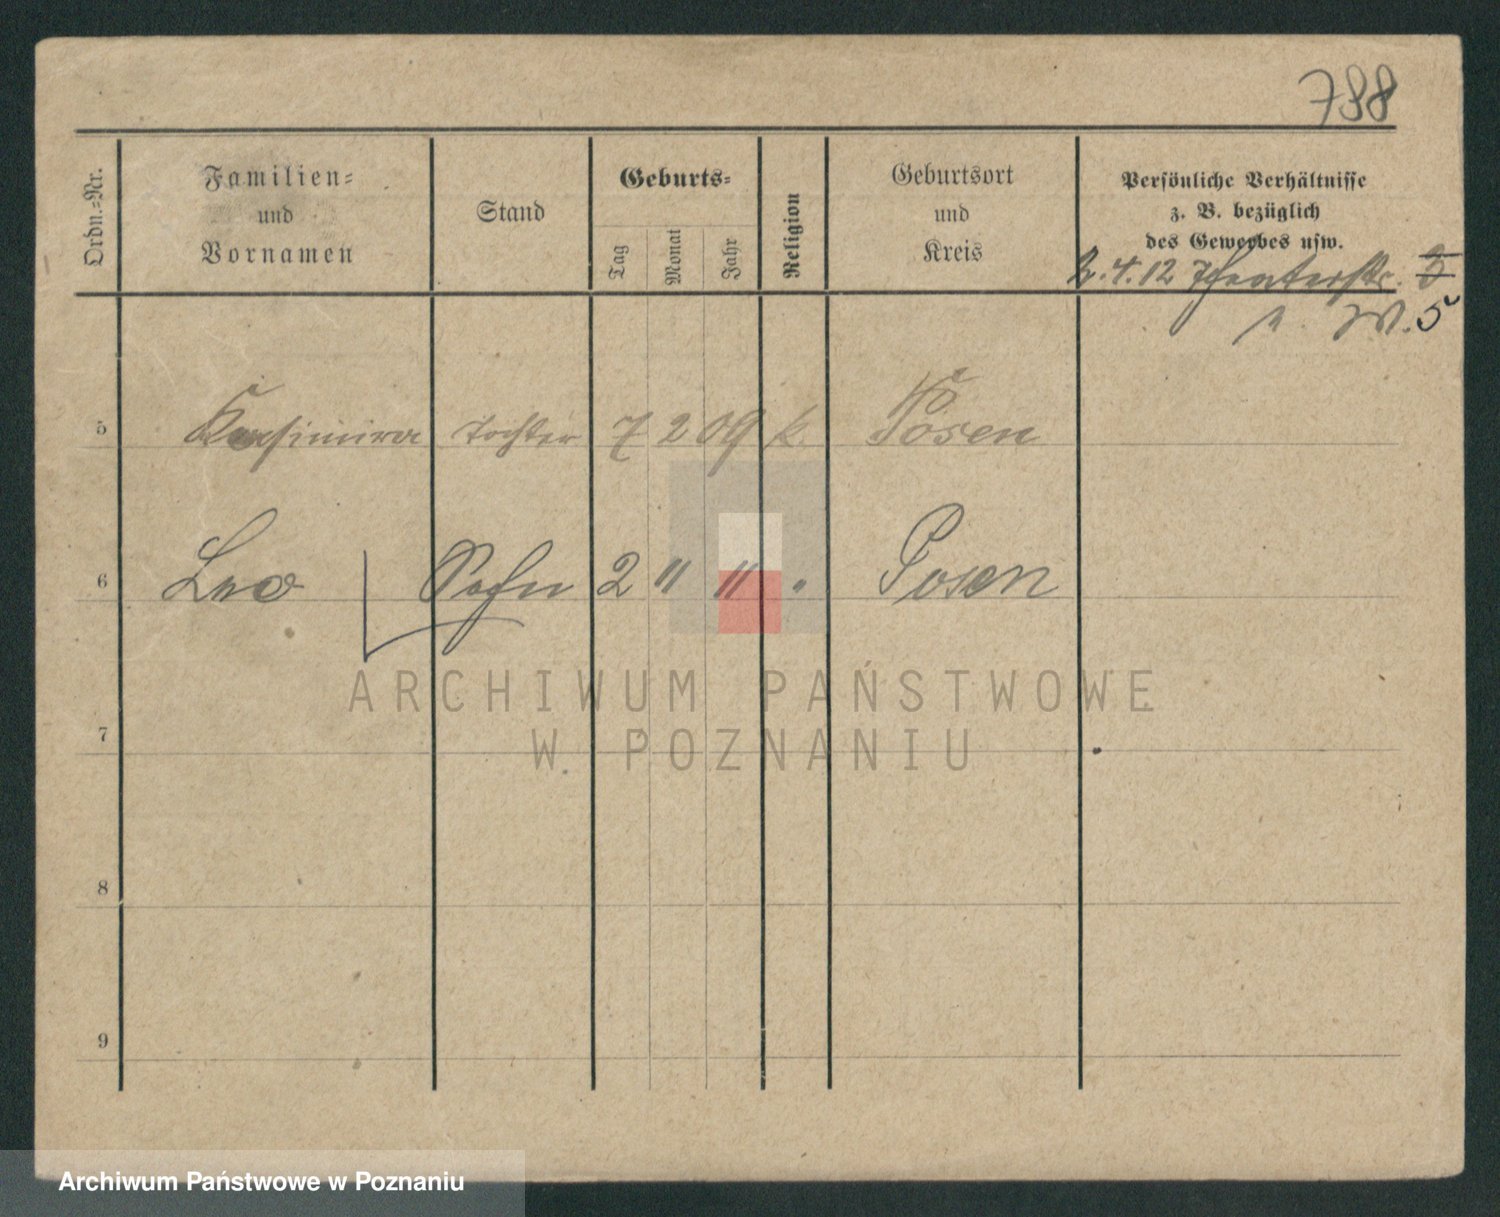 788
Ordn.-Nr.
Familien-
und
Vornamen
Stand
Geburts-
Tag
Monat
Jahr
Religion
Geburtsort
und
Kreis
Persönliche Verhältnisse
z. B. bezüglich
des Gewerbes usw.
2.4.12 Theaterstr. 3
W. 5
5 Kasimira Tochter 7 2 09 k. Posen
6 Leo Sohn 2 " 11 " Posen
ARCHIWUM PAŃSTWOWE
W POZNANIU
7
8
9
Archiwum Państwowe w Poznaniu